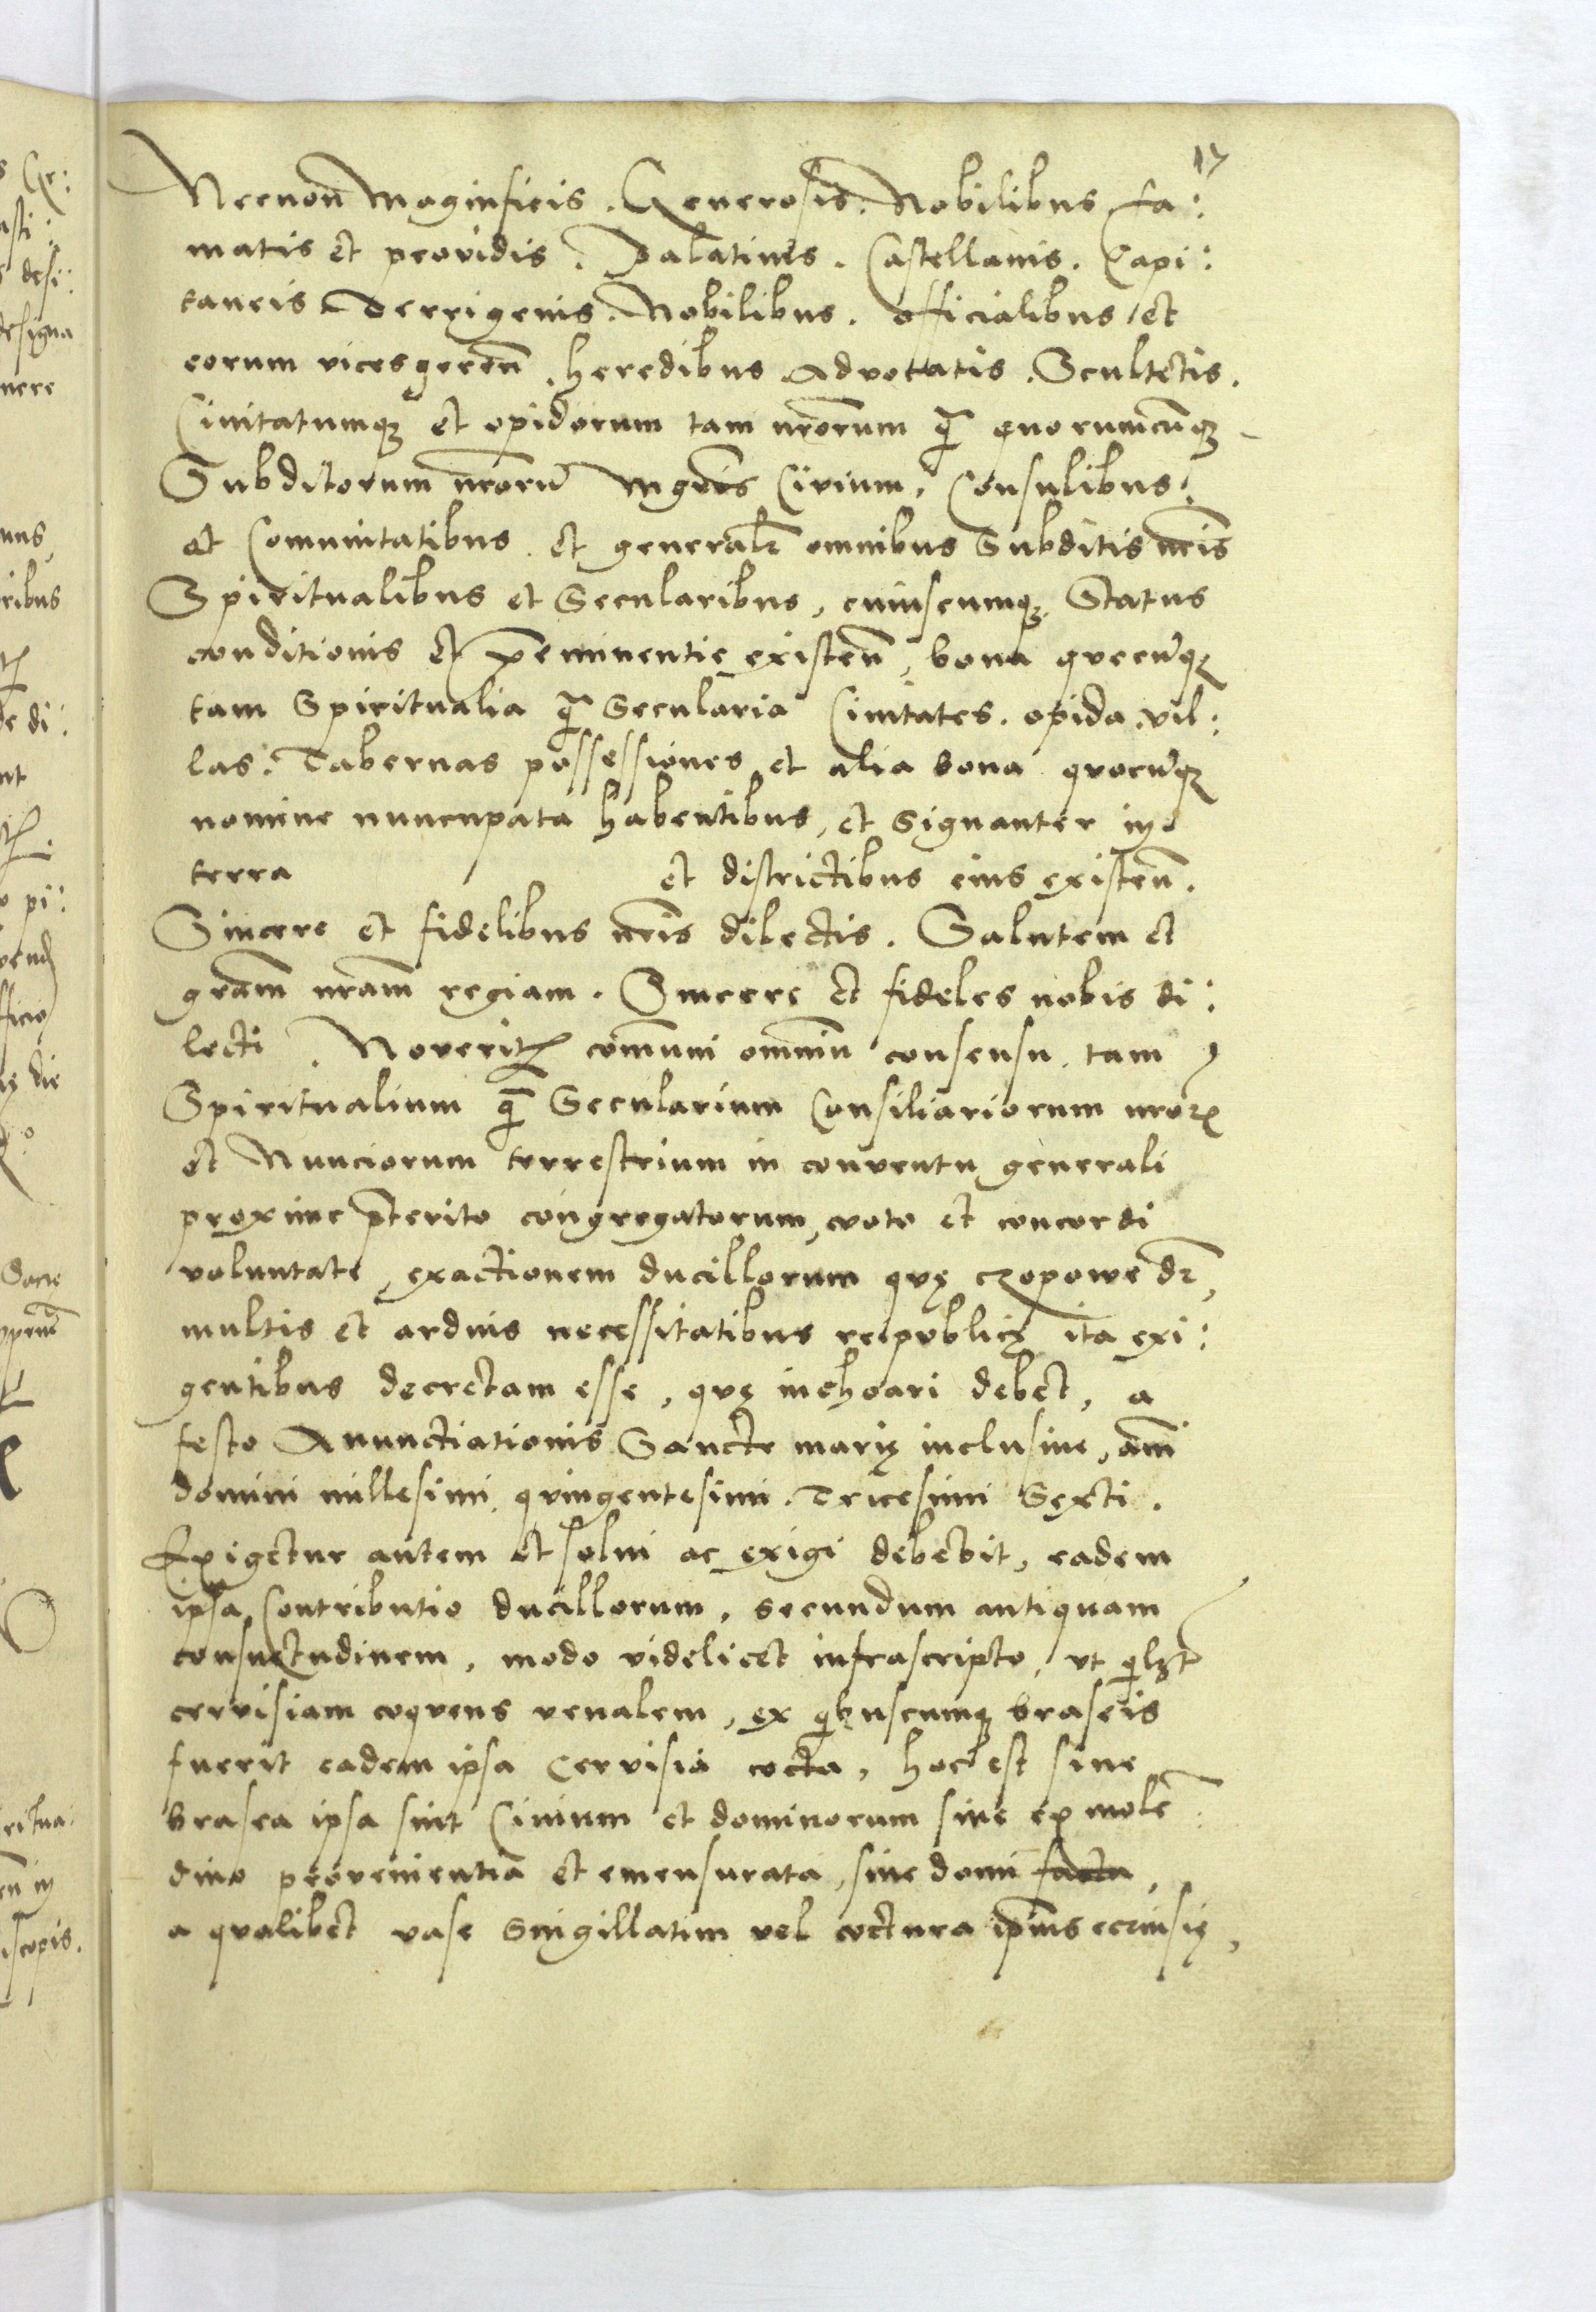 17
Necnon Magnificis. Generosis. Nobilibus fa:
matis et providis. Palatinis. Castellanis. Capi:
taneis Terrigenis. Nobilibus. officialibus et
eorum vicesgereñ. heredibus Advocatis. Scultetis.
Civitatumqꝫ et opidorum tam nr̃orum ꝗ̃ quorumcũqꝫ
Subditorum nr̃orũ Mgr̃is Civium, Consulibus
et Comunitatibus et generalr̃ omnibus Subditis nr̃is
Spiritualibus et Secularibus, cuiuscumqꝫ Status
conditionis et p̃eminentię existeñ, bona quecũqꝫ
tam Spiritualia ꝗ̃ Secularia Civitates. opida. vil:
las: Tabernas possessiones et alia bona quocũqꝫ
nomine nuncupata habentibus, et signanter in
terra et districtibus eius existeñ.
Sincere et fidelibus nr̃is dilectis. Salutem et
gr̃am nr̃am regiam. Sincere et fideles nobis di:
lecti. Noveritꝭ com̃uni omniũ consensu tam
Spiritualium ꝗ̃ Secularium Consiliariorum nr̃oꝝ
et Nunciorum terrestrium in conventu generali
proxime p̃terito congregatorum, voto et concordi
voluntate, exactionem ducillorum quę czopowe dr̃,
multis et arduis necessitatibus reipublicę ita exi:
gentibus decretam esse, quę inchoari debet, a
festo Anunctiationis Sancte marię inclusive, añi
domini millesimi quingentesimi. Tricesimi Sexti.
Exigetur autem et solui ac exigi debebit, eadem
ipsa Contributio ducillorum, secundum antiquam
consuetudinem, modo videlicet infrascripto, vt ꝗlꝫt
cervisiam coquens venalem, ex ꝗbuscumqꝫ braseis
fuerit eadem ipsa Cervisia cocta, hoc est sive
brasea ipsa sint Civium et dominorum sive ex mole
dino provenientia et emensurata, sive domi facta,
a qualibet vase Singillatim vel coctura ip̃ius cervisię,